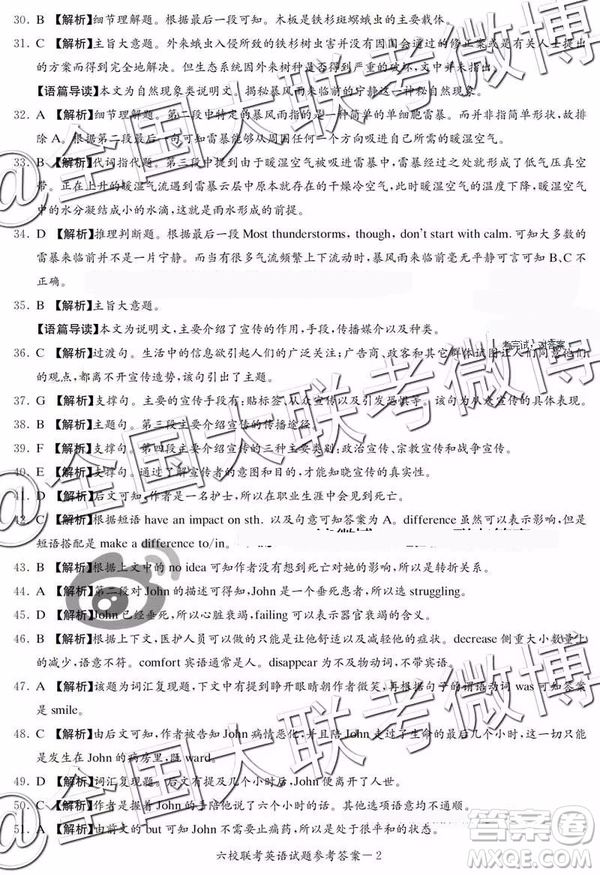 30. B 【解析】细节理解题。最后一段可知。木板是铁杉斑螟蛾虫的天敌。
31. C 【解析】主旨大意题。外来蛾虫入侵所致的铁杉树虫害并不会因为通过的修正案或是有关人士提出
的方案而得到完全地解决。但生态系统因外来物种入侵而遭到破坏的现象应引起重视。
【语篇导读】本文为自然现象类说明文。揭秘暴风雨前的宁静这一种自然现象。
32. A 【解析】细节理解题。第二段中特定的暴风雨才会是这样的形成方式。而非指简单形状,故排
除 A。根据第二段最后一句,可知雷暴能够从周围任何一个方向吸进自己所需的暖湿空气。
33. B 【解析】代词指代题。第三段中提到由于暖湿空气被吸进雷暴中,雷暴经过之处就形成了低气压真空
带。正在上升的暖气流遇到雷暴云层中原本就存在的干燥冷空气,使得暖湿空气的温度下降,空气中
的水分凝结成小的水滴,这是雨水形成的前提。
34. D 【解析】推理判断题。根据最后一段 Most thunderstorms, though, don't start with calm. 可知大多数的
雷暴来临前不是一片宁静。而且当很多气流频繁互动时,暴风雨来临前毫无平静可言可知 B、C 不
正确。
35. B 【解析】主旨大意题。
【语篇导读】本文为说明文,主要介绍了宣传的作用,手段,传播媒介以及种类。
36. C 【解析】过渡句。生活中的信息欲引起人们的广泛关注;广告商、政客和其它群体试图让人们同意他们
的观点,都离不开宣传造势,该句承上启下,引出了主题。
37. G 【解析】支撑句。主要的宣传手段有:贴标签、从众效应、
38. B 【解析】主题句。第三段主要介绍宣传的传播途径。
39. F 【解析】支撑句。第四段介绍宣传的三种主要类型,政治宣传、宗教宣传和战争宣传。
40. E 【解析】支撑句。通过了解宣传者的意图和目的,才能知晓宣传的真实性。
41. D 【解析】后文可知,作者是一名护士,所以在职业生涯中会见到死亡。
42. C 【解析】根据短语 have an impact on sth. 以及句意可知答案为 A。difference 虽然可以表示影响,但是
短语搭配是 make a difference to/in。
43. B 【解析】根据上文中的 no idea 可知作者意识不到死亡对她的影响,所以是转折关系。
44. A 【解析】第二段对 John 的描写可知,John 是一个垂死患者,所以是 struggling。
45. D 【解析】John 已经垂死,所以是心脏衰竭,failing 可以表示器官衰竭的含义。
46. B 【解析】根据上下文,医护人员可以做的便是给他舒适以及缓解他的疼痛。decrease 侧重大小数量上
的减少,语意不符。comfort 宾语通常是人。disappear 为不及物动词,不能带宾语。
47. A 【解析】该题为词汇复现题,下文中有提到睁开眼睛朝作者微笑,再根据此处的语意可知答案
是 smile。
48. C 【解析】由后文可知,作者被告知 John 病情恶化,并且由下文可知 John 很快离开人世,所以此处作者
的反应是返回 John 的病房里,既 ward。
49. D 【解析】词汇复现题。后文中有提到 John 安静地离开了人世。
50. C 【解析】作者是握着 John 的手陪他说了六个小时的话。其他选项语意均不成立。
51. A 【解析】由前文的 John 垂死可知,所以是处于很平和的状态。
六校联考英语试题参考答案－2
@全国大联考微博